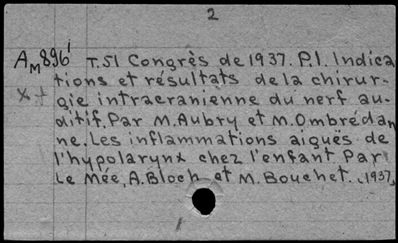 2
AM896' T.51 Congrès de 1937. P.1. Indica
tions et résultats de la chirur-
gie intracranienne du nerf au-
ditif. Par M. Aubry et M. Ombrédan
ne. Les inflammations aiguës de
l'hypolarynx chez l'enfant Par
Le Mée, A. Bloch et M. Bouchet. 1937.